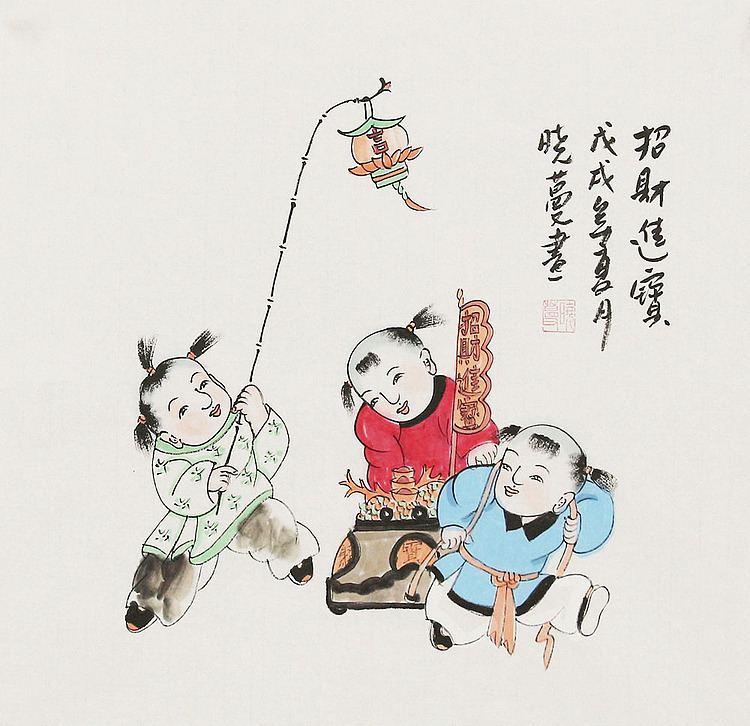 招財進寶
戊戌年夏月
晓蔓畫
吉
招財進寶